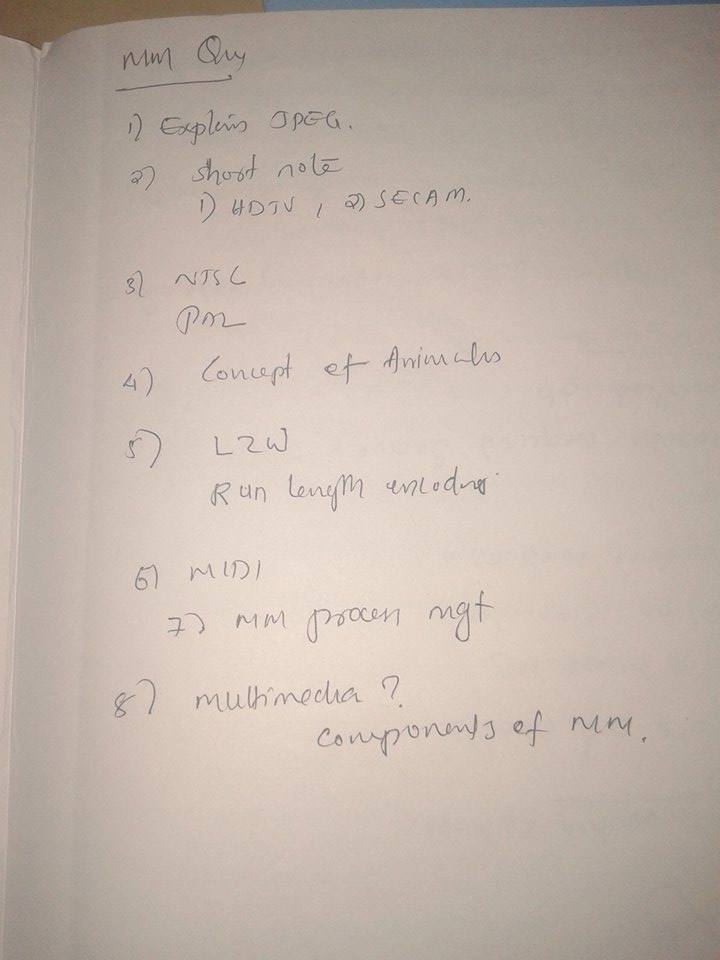 MM Qus
1) Explain JPEG.
2) Short note
1) HDTV, 2) SECAM.
3) NTSC
PAL
4) Concept of Animatis
5) LZW
Run length encoding
6) MIDI
7) MM process mgt
8) multimedia?
components of MM.